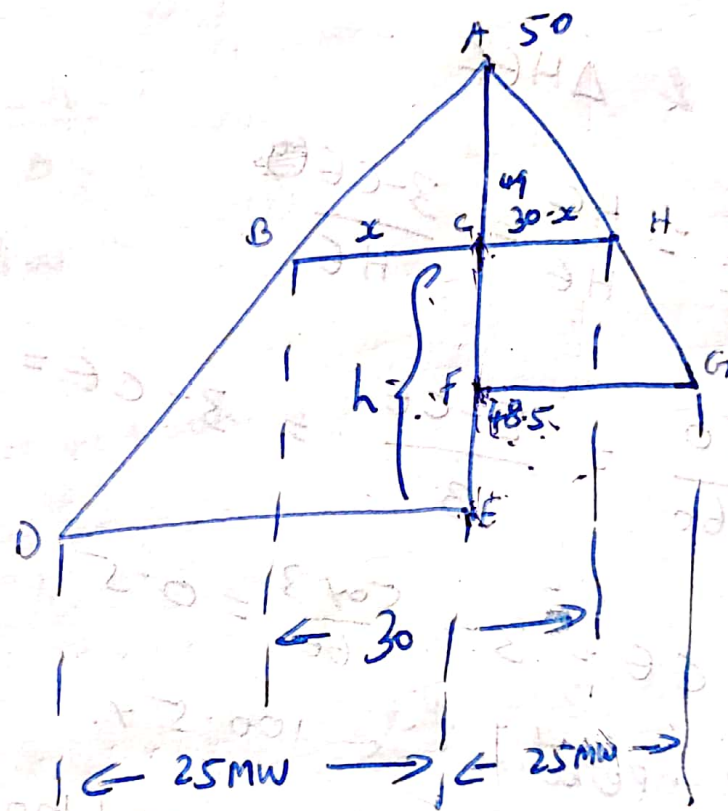 A 50
49
B x C 30-x H
h F G
48.5
D E
← 30 →
← 25MW → ← 25MW →